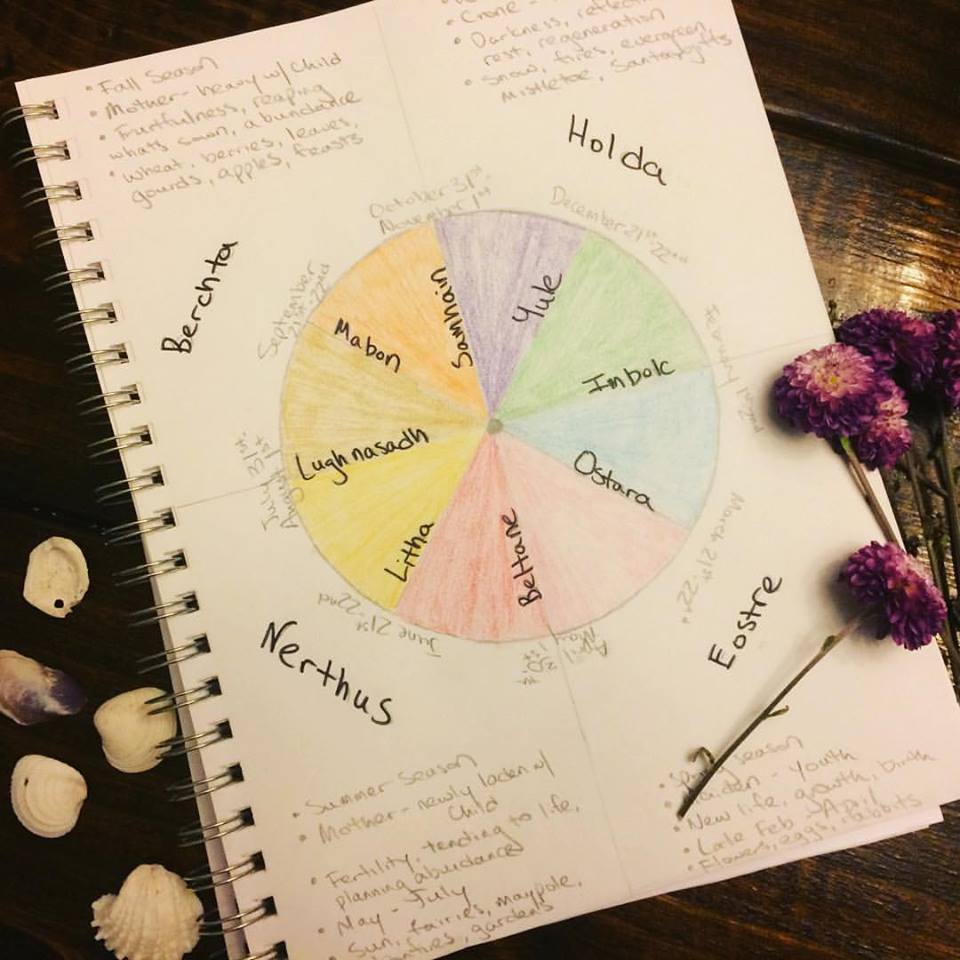 • Fall Season
• Mother - heavy w/ Child
• Fruitfulness, reaping
whats sown, abundance
• wheat, berries, leaves,
gourds, apples, feasts
• Crone -
• Darkness,
rest, regeneration
• snow, fires, evergreen,
mistletoe, Santa, gifts
Holda
Berchta
October 31st
November 1st
December 21st-22nd
September
22nd
Samhain
Yule
Mabon
Imbolc
Lughnasadh
Ostara
Litha
Beltane
July 31st-
August 1st
March 21st-22nd
June 21st-22nd
April 30th
May 1st
Nerthus
Eostre
• Summer Season
• Mother - newly laden w/
Child
• Fertility, tending to life,
planning abundance
• May - July
• Sun, fairies, maypole,
gardens
Season
Maiden - Youth
• New life, growth, birth
• Late Feb - April
• Flowers, eggs, rabbits